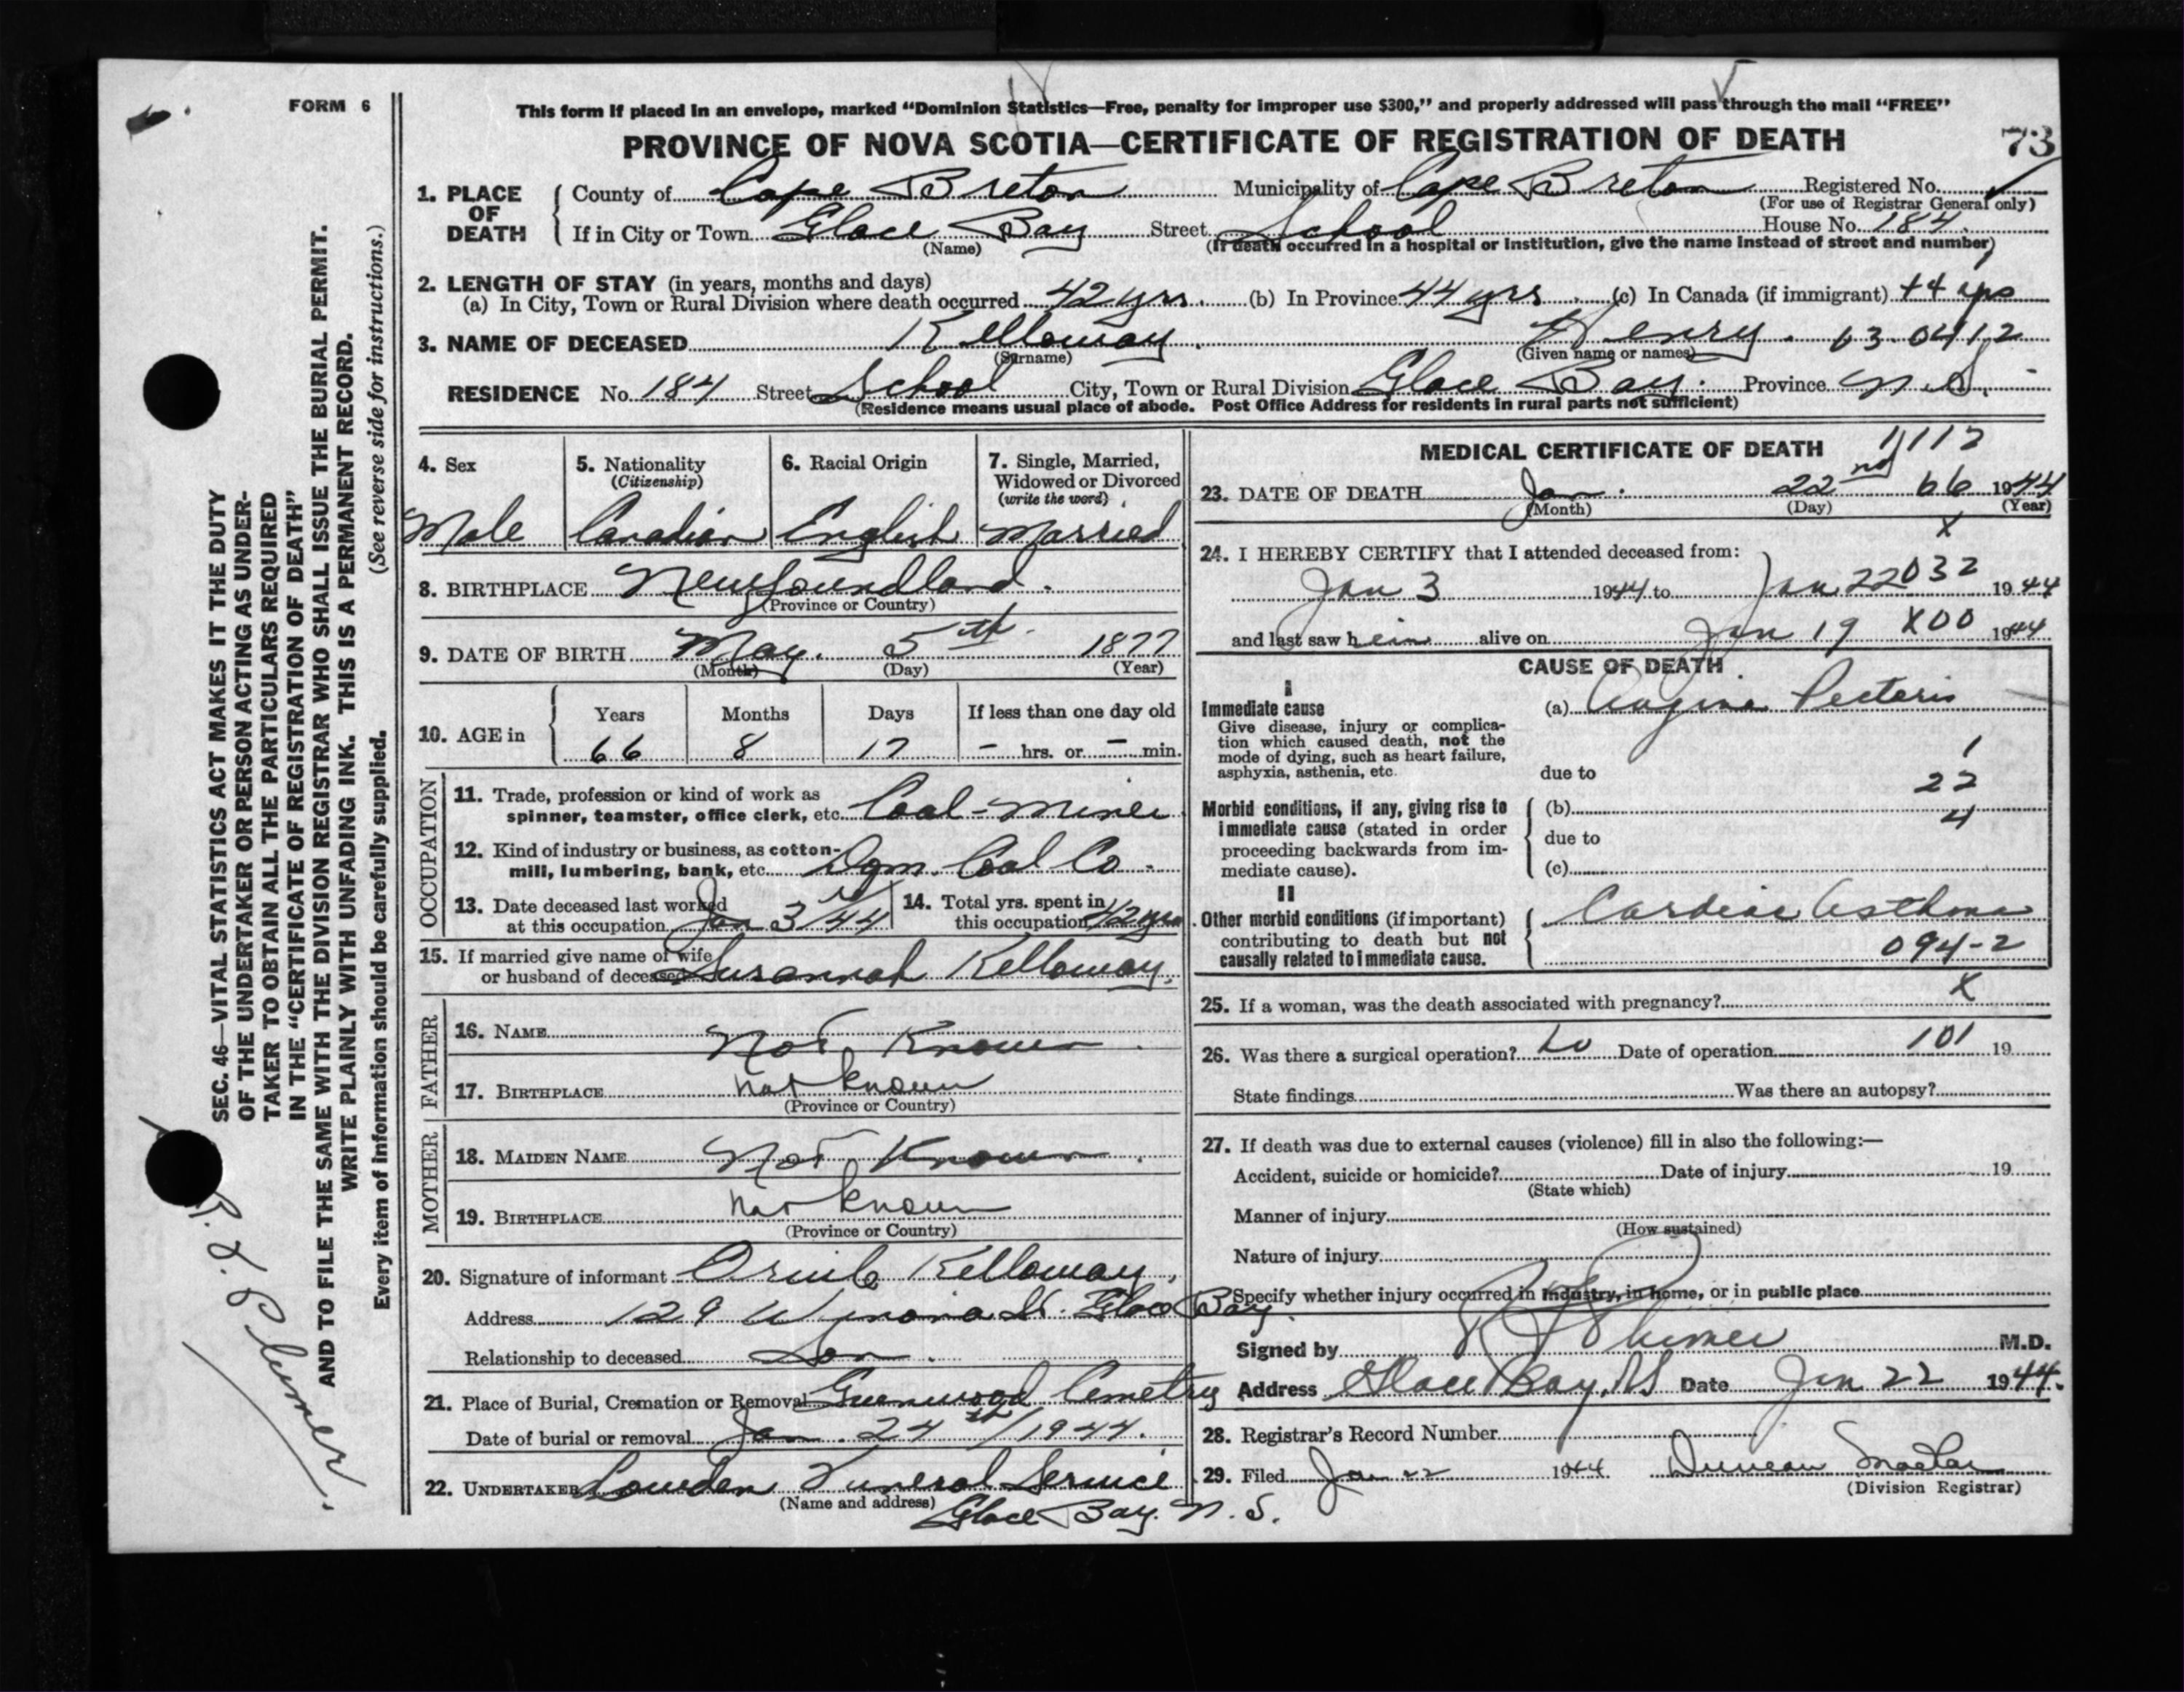 FORM 6
This form if placed in an envelope, marked “Dominion Statistics—Free, penalty for improper use $300,” and properly addressed will pass through the mail “FREE”
PROVINCE OF NOVA SCOTIA—CERTIFICATE OF REGISTRATION OF DEATH
73
1. PLACE OF DEATH County of Cape Breton Municipality of Cape Breton Registered No.
(For use of Registrar General only)
If in City or Town Glace Bay Street School House No. 184
(Name) (If death occurred in a hospital or institution, give the name instead of street and number)
2. LENGTH OF STAY (in years, months and days)
(a) In City, Town or Rural Division where death occurred 42 yrs. (b) In Province 44 yrs (c) In Canada (if immigrant) 44 yrs
3. NAME OF DECEASED Kelloway. Henry. 63.0412
(Surname) (Given name or names)
RESIDENCE No. 184 Street School City, Town or Rural Division Glace Bay. Province N.S.
(Residence means usual place of abode. Post Office Address for residents in rural parts not sufficient)
4. Sex
Male
5. Nationality
(Citizenship)
Canadian
6. Racial Origin
English
7. Single, Married,
Widowed or Divorced
(write the word)
Married
8. BIRTHPLACE Newfoundland.
(Province or Country)
9. DATE OF BIRTH May. 5th 1877
(Month) (Day) (Year)
10. AGE in Years Months Days If less than one day old
66 8 17 – hrs. or – min.
OCCUPATION
11. Trade, profession or kind of work as
spinner, teamster, office clerk, etc. Coal-Miner
12. Kind of industry or business, as cotton-
mill, lumbering, bank, etc. Dom. Coal Co.
13. Date deceased last worked
at this occupation Jan 3rd/44
14. Total yrs. spent in
this occupation 42 yrs
15. If married give name of wife
or husband of deceased Susannah Kelloway.
FATHER
16. NAME Not Known.
17. BIRTHPLACE not known
(Province or Country)
MOTHER
18. MAIDEN NAME Not Known.
19. BIRTHPLACE not known
(Province or Country)
20. Signature of informant Kelloway,
Address 129 St. Glace Bay.
Relationship to deceased Son.
21. Place of Burial, Cremation or Removal Greenwood Cemetery
Date of burial or removal Jan. 24th/1944.
22. UNDERTAKER Lowden Funeral Service
(Name and address) Glace Bay. N.S.
MEDICAL CERTIFICATE OF DEATH 1112
23. DATE OF DEATH Jan. 22nd 66 1944
(Month) (Day) (Year)
X
24. I HEREBY CERTIFY that I attended deceased from:
Jan 3 1944 to Jan 22 032 1944
and last saw him alive on Jan 19 X00 1944
CAUSE OF DEATH
I
Immediate cause (a) Angina Pectoris
Give disease, injury or complica-
tion which caused death, not the
mode of dying, such as heart failure,
asphyxia, asthenia, etc. due to
1
22
4
Morbid conditions, if any, giving rise to (b)
immediate cause (stated in order due to
proceeding backwards from im-
mediate cause). (c)
II
Other morbid conditions (if important) Cardiac Asthma
contributing to death but not
causally related to immediate cause. 094-2
X
25. If a woman, was the death associated with pregnancy?
26. Was there a surgical operation? no Date of operation 101 19
State findings Was there an autopsy?
27. If death was due to external causes (violence) fill in also the following:—
Accident, suicide or homicide? Date of injury 19
(State which)
Manner of injury
(How sustained)
Nature of injury
Specify whether injury occurred in industry, in home, or in public place
Signed by M.D.
Address Glace Bay, NS Date Jan 22 1944.
28. Registrar’s Record Number
29. Filed Jan 22 1944 Duncan
(Division Registrar)
SEC. 46—VITAL STATISTICS ACT MAKES IT THE DUTY
OF THE UNDERTAKER OR PERSON ACTING AS UNDER-
TAKER TO OBTAIN ALL THE PARTICULARS REQUIRED
IN THE “CERTIFICATE OF REGISTRATION OF DEATH”
AND TO FILE THE SAME WITH THE DIVISION REGISTRAR WHO SHALL ISSUE THE BURIAL PERMIT.
WRITE PLAINLY WITH UNFADING INK. THIS IS A PERMANENT RECORD.
(See reverse side for instructions.)
Every item of information should be carefully supplied.